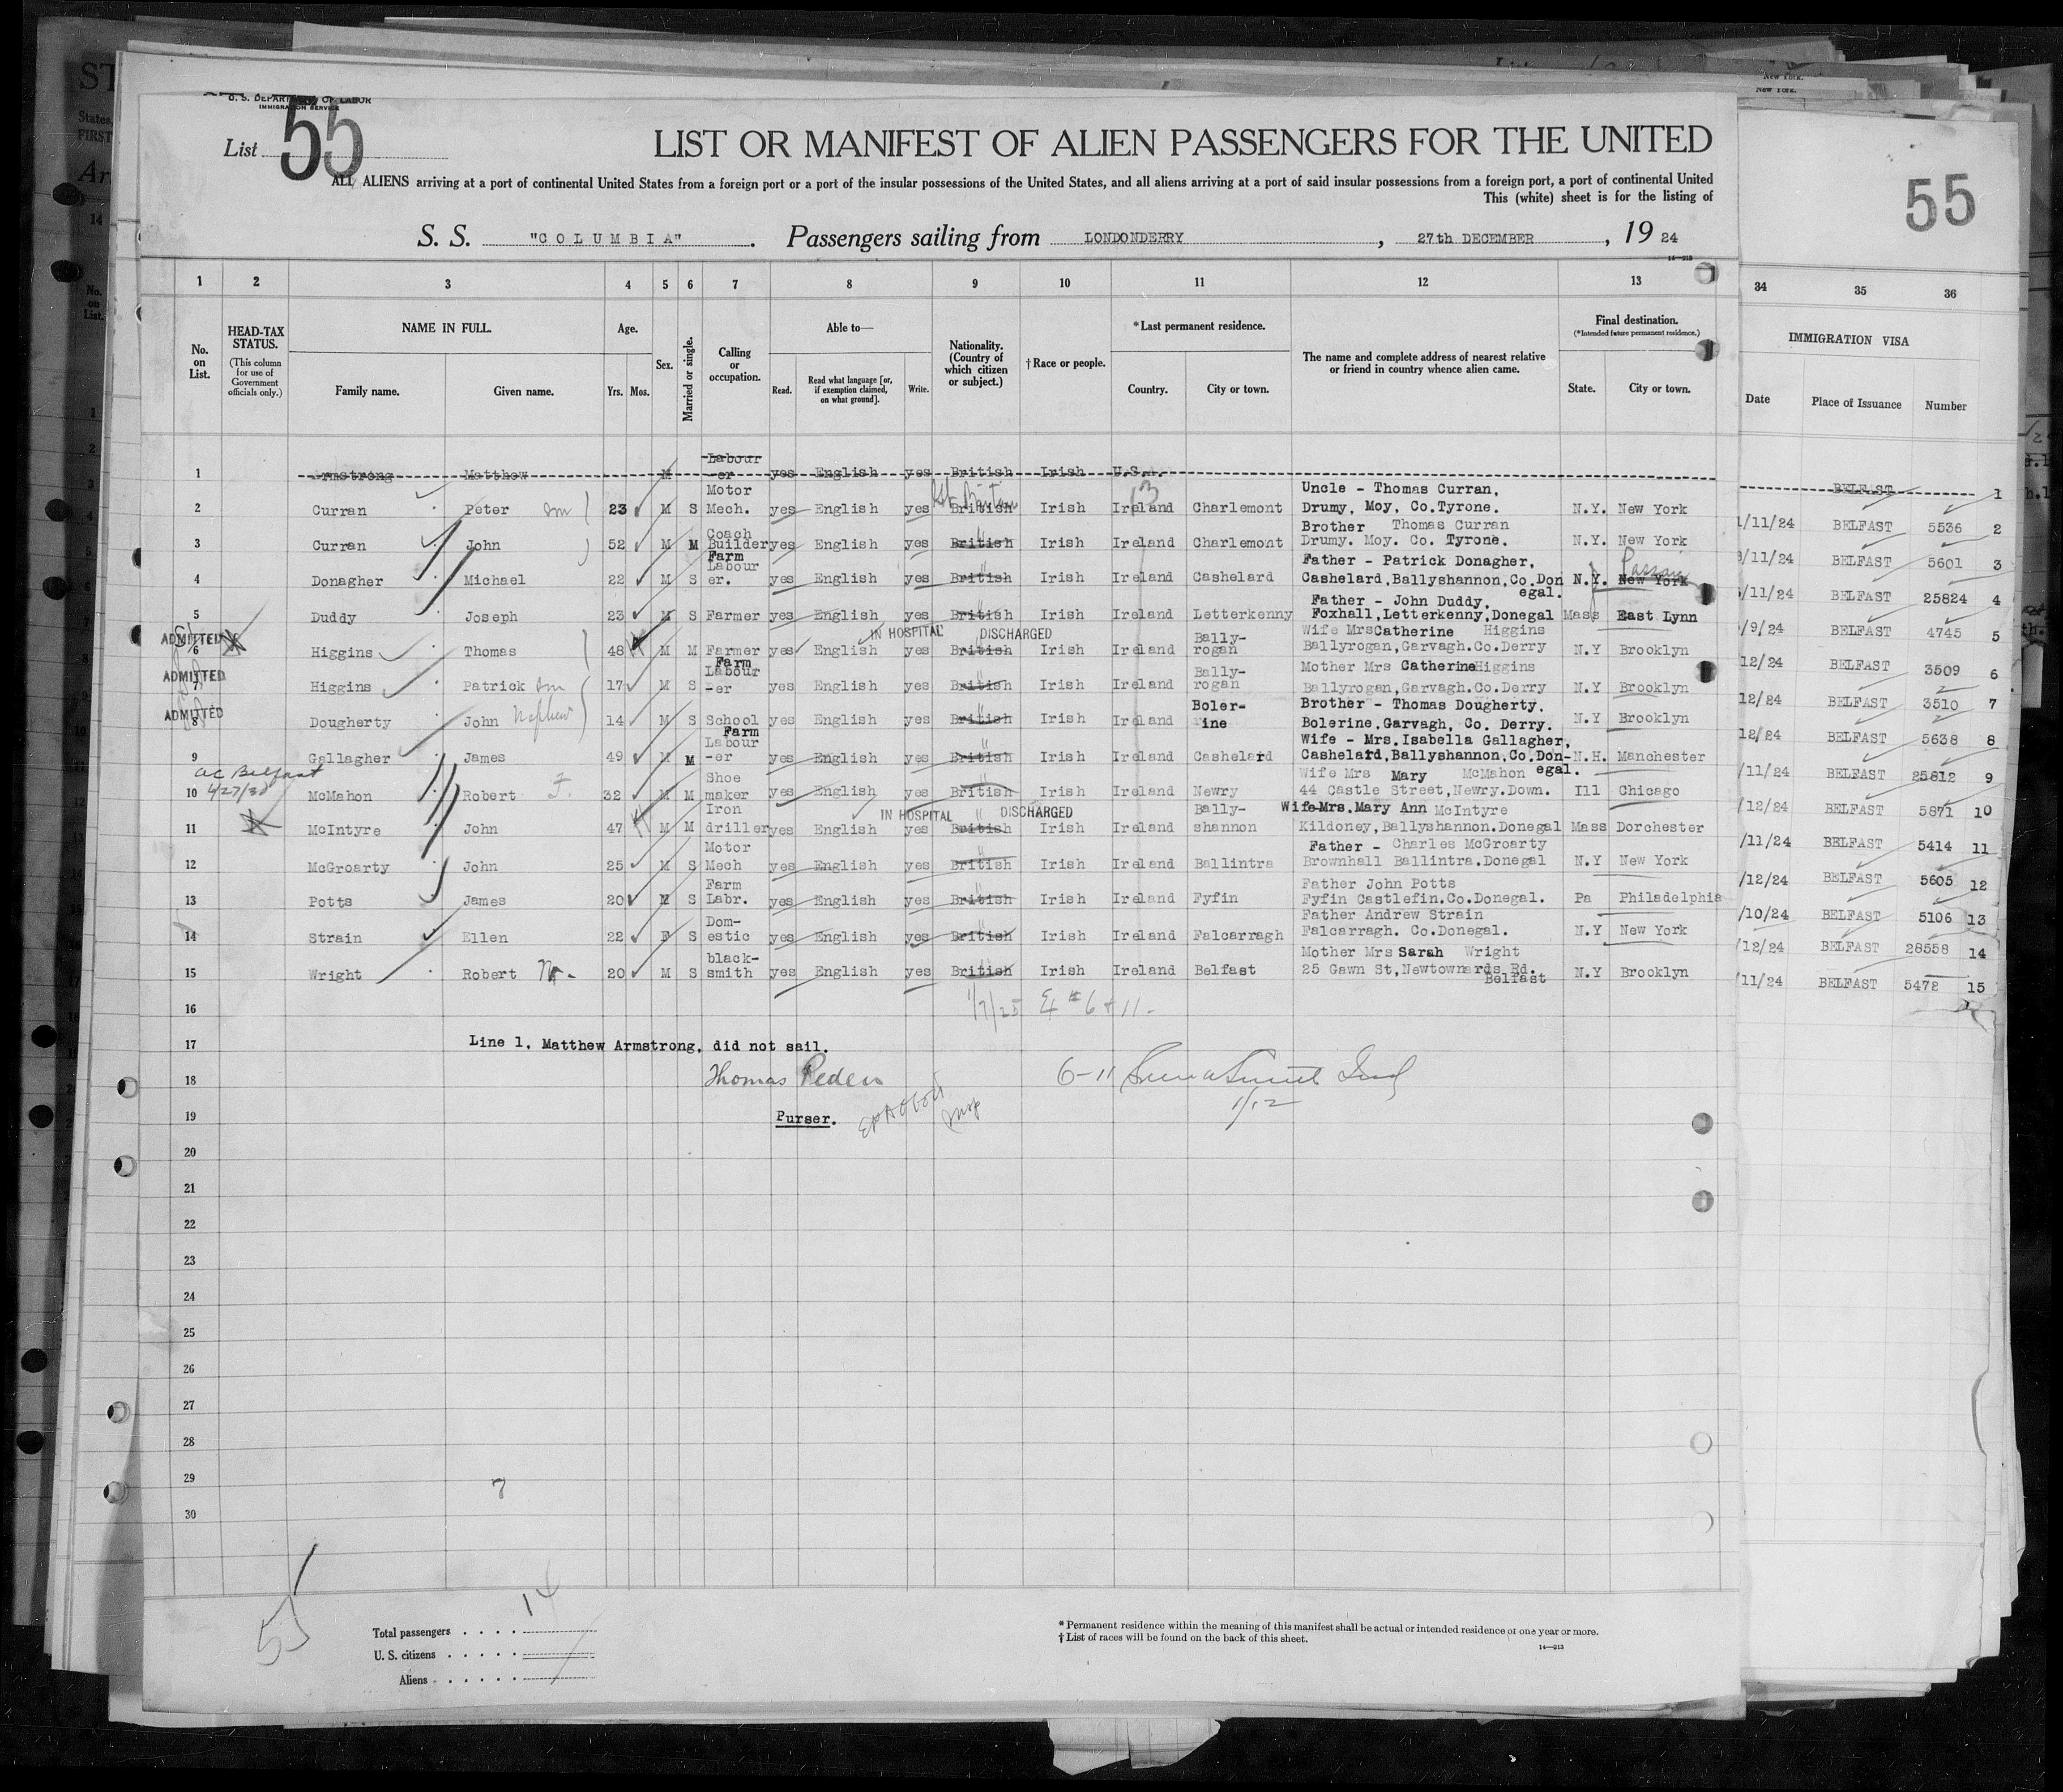 U. S. DEPARTMENT OF LABOR
IMMIGRATION SERVICE
List 55
LIST OR MANIFEST OF ALIEN PASSENGERS FOR THE UNITED
ALL ALIENS arriving at a port of continental United States from a foreign port or a port of the insular possessions of the United States, and all aliens arriving at a port of said insular possessions from a foreign port, a port of continental United
This (white) sheet is for the listing of
S. S. "COLUMBIA". Passengers sailing from LONDONDERRY, 27th DECEMBER, 19 24
14—213
55
1 2 3 4 5 6 7 8 9 10 11 12 13 34 35 36
No. on List.
HEAD-TAX STATUS.
(This column for use of Government officials only.)
NAME IN FULL.
Family name. Given name.
Age.
Yrs. Mos.
Sex.
Married or single.
Calling or occupation.
Able to—
Read. Read what language [or, if exemption claimed, on what ground]. Write.
Nationality. (Country of which citizen or subject.)
† Race or people.
* Last permanent residence.
Country. City or town.
The name and complete address of nearest relative or friend in country whence alien came.
Final destination.
(*Intended future permanent residence.)
State. City or town.
IMMIGRATION VISA
Date Place of Issuance Number
1 Armstrong Matthew M Labour-er yes English yes British Irish U.S.A. BELFAST 1
2 Curran Peter 23 M S Motor Mech. yes English yes British Irish Ireland Charlemont Uncle - Thomas Curran, Drumy, Moy, Co.Tyrone. N.Y. New York 1/11/24 BELFAST 5536 2
3 Curran John 52 M M Coach Builder yes English yes British Irish Ireland Charlemont Brother Thomas Curran Drumy. Moy. Co. Tyrone. N.Y. New York /11/24 BELFAST 5601 3
4 Donagher Michael 22 M S Farm Labourer. yes English yes British Irish Ireland Cashelard Father - Patrick Donagher, Cashelard,Ballyshannon,Co.Donegal. N.Y. New York Passaic /11/24 BELFAST 25824 4
5 Duddy Joseph 23 M S Farmer yes English yes British Irish Ireland Letterkenny Father - John Duddy, Foxhall,Letterkenny,Donegal Mass East Lynn /9/24 BELFAST 4745 5
ADMITTED IN HOSPITAL DISCHARGED
6 Higgins Thomas 48 M M Farmer yes English yes British Irish Ireland Bally-rogan Wife Mrs Catherine Higgins Ballyrogan,Garvagh.Co.Derry N.Y Brooklyn 12/24 BELFAST 3509 6
ADMITTED
7 Higgins Patrick 17 M S Farm Labour-er yes English yes British Irish Ireland Bally-rogan Mother Mrs Catherine Higgins Ballyrogan,Garvagh.Co.Derry N.Y Brooklyn 12/24 BELFAST 3510 7
ADMITTED
8 Dougherty John Nephew 14 M S School yes English yes British Irish Ireland Boler-ine Brother - Thomas Dougherty. Bolerine,Garvagh, Co. Derry. N.Y Brooklyn 12/24 BELFAST 5638 8
9 Gallagher James 49 M M Farm Labour-er yes English yes British Irish Ireland Cashelard Wife - Mrs.Isabella Gallagher, Cashelard,Ballyshannon,Co.Don-egal. N.H. Manchester /11/24 BELFAST 25812 9
ac Belfast 4/27/38
10 McMahon Robert 32 M M Shoe maker yes English yes British Irish Ireland Newry Wife Mrs Mary McMahon 44 Castle Street,Newry.Down. Ill Chicago /12/24 BELFAST 5871 10
IN HOSPITAL DISCHARGED
11 McIntyre John 47 M M Iron driller yes English yes British Irish Ireland Bally-shannon Wife-Mrs.Mary Ann McIntyre Kildoney,Ballyshannon.Donegal Mass Dorchester /11/24 BELFAST 5414 11
12 McGroarty John 25 M S Motor Mech yes English yes British Irish Ireland Ballintra Father - Charles McGroarty Brownhall Ballintra.Donegal N.Y New York /12/24 BELFAST 5605 12
13 Potts James 20 M S Farm Labr. yes English yes British Irish Ireland Fyfin Father John Potts Fyfin Castlefin.Co.Donegal. Pa Philadelphia /10/24 BELFAST 5106 13
14 Strain Ellen 22 F S Dom-estic yes English yes British Irish Ireland Falcarragh Father Andrew Strain Falcarragh. Co.Donegal. N.Y New York /12/24 BELFAST 28558 14
15 Wright Robert 20 M S black-smith yes English yes British Irish Ireland Belfast Mother Mrs Sarah Wright 25 Gawn St,Newtownards Rd. Belfast N.Y Brooklyn /11/24 BELFAST 5472 15
16 1/7/25 #6 & 11.
17 Line 1, Matthew Armstrong, did not sail.
18 Thomas Peden 6-11
19 Purser. 1/12
20
21
22
23
24
25
26
27
28
29 7
30
55
Total passengers . . . . 14
U. S. citizens . . . . .
Aliens . . . . . .
* Permanent residence within the meaning of this manifest shall be actual or intended residence of one year or more.
† List of races will be found on the back of this sheet.
14—213